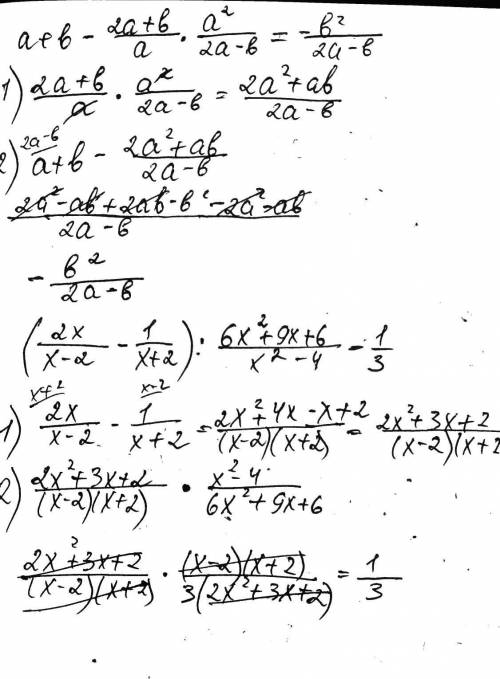 a+b - (2a+b)/a · a²/(2a-b) = -b²/(2a-b)
1) (2a+b)/a · a²/(2a-b) = (2a²+ab)/(2a-b)
2a-b
2) a+b - (2a²+ab)/(2a-b)
(2a²-ab+2ab-b²-2a²-ab)/(2a-b)
- b²/(2a-b)
(2x/(x-2) - 1/(x+2)) : (6x²+9x+6)/(x²-4) - 1/3
x+2 x-2
1) 2x/(x-2) - 1/(x+2) = (2x²+4x-x+2)/((x-2)(x+2)) = (2x²+3x+2)/((x-2)(x+2
2) (2x²+3x+2)/((x-2)(x+2)) · (x²-4)/(6x²+9x+6)
(2x²+3x+2)/((x-2)(x+2)) · ((x-2)(x+2))/(3(2x²+3x+2)) = 1/3